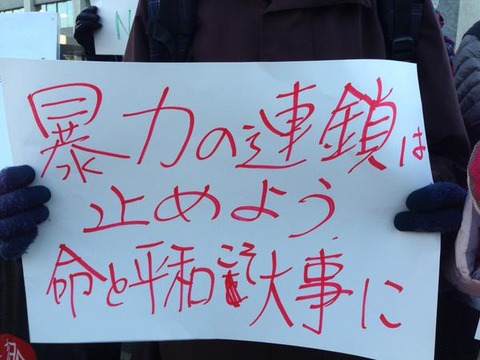 暴力の連鎖は
止めよう
命と平和こそ大事に
N